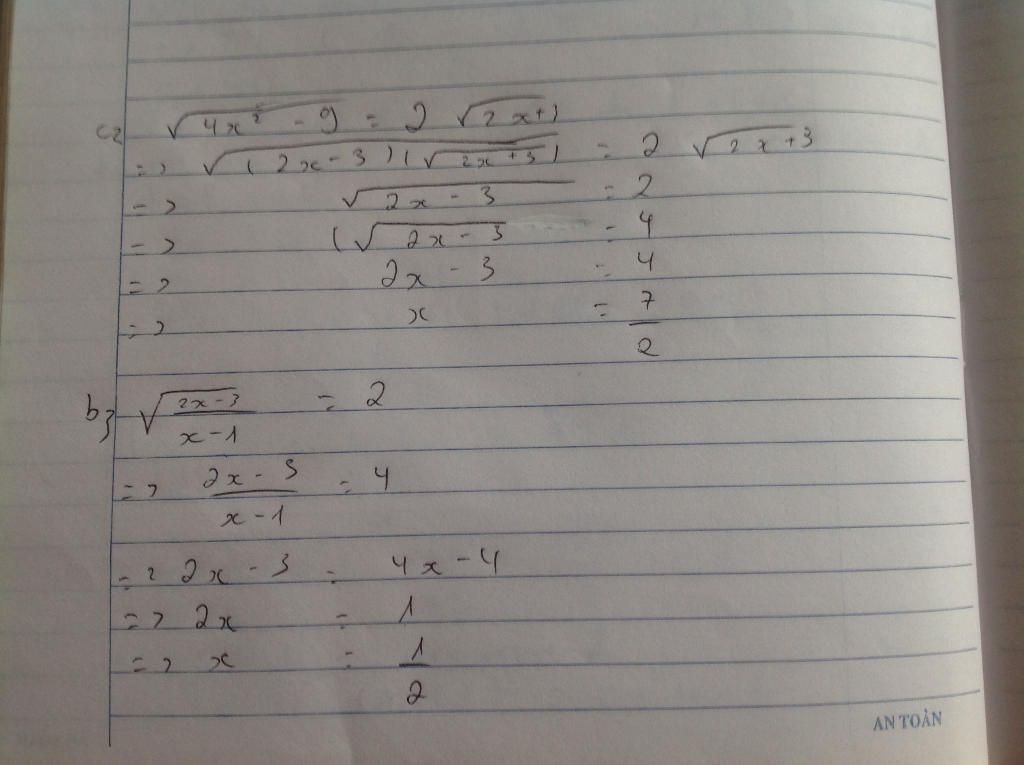 c, √(4x² - 9) = 2 √(2x+3)
=> √((2x-3)(√(2x+3))) = 2 √(2x+3)
=> √(2x - 3) = 2
=> (√(2x - 3) = 4
=> 2x - 3 = 4
=> x = 7/2
b, √((2x-3)/(x-1)) = 2
=> (2x - 3)/(x - 1) = 4
=> 2x - 3 = 4x - 4
=> 2x = 1
=> x = 1/2
AN TOÀN